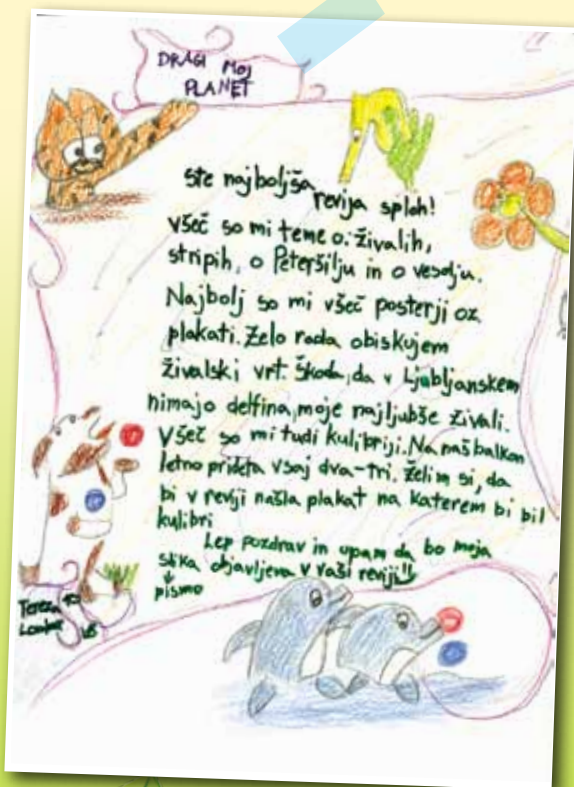 DRAGI MOJ
PLANET
Ste najboljša
revija sploh!
všeč so mi teme o: živalih,
stripih, o Peteršilju in o vesolju.
Najbolj so mi všeč posterji oz.
plakati. Zelo rada obiskujem
živalski vrt. Škoda, da v Ljubljanskem
nimajo delfina, moje najljubše živali.
Všeč so mi tudi kulibriji. Na naš balkon
letno prideta vsaj dva-tri. želim si, da
bi v reviji našla plakat na katerem bi bil
kulibri
Lep pozdrav in upam da bo moja
slika objavljena v vaši reviji!!
pismo